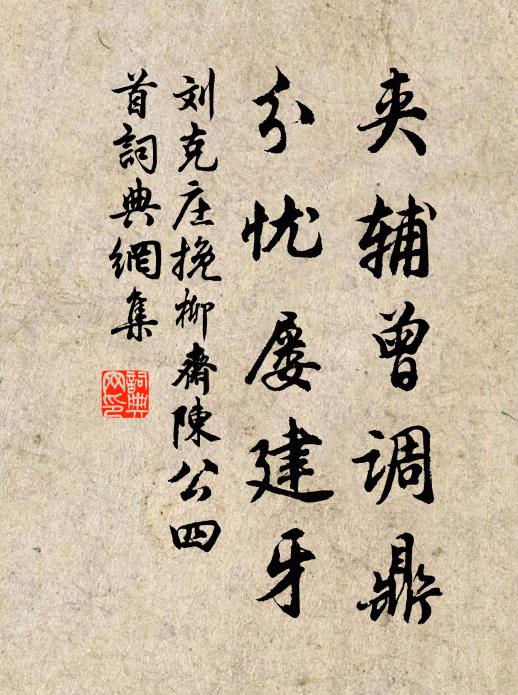 夹辅曾调鼎
分忧屡建牙
刘克庄挽柳齋陳公四
首詞典網集
詞典网印